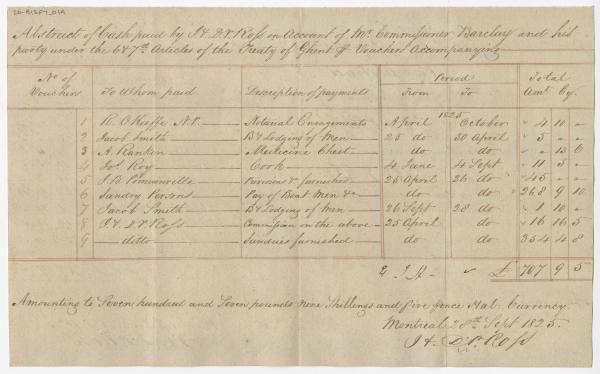 Abstract of Cash paid by J. & D. Ross on Account of Mr. Commissioner Barclay and his
party under the 6 & 7th. Articles of the Treaty of Ghent pr Vouchers Accompanying
No. of Vouchers To Whom paid Description of payments Period From To Total Amt. Cy.
1825
1 R. O'Keeffe N.P. Notarial Engagements April October " 4 10 "
2 Jacob Smith Bd. & Lodging of Men 25 do 30 April " 5 " "
3 A. Rankin Medicine Chest do do " " 13 6
4 Jos. Roy Cook 4 June 4 Sept " 11 5 "
5 J B Pomminville Provisions & furnished 25 April 26 do " 45 " "
6 Sundry Persons Pay of Boat Men &c. do do 268 9 10
7 Jacob Smith Bd. & Lodging of Men 26 Sept 28 do " 1 10 "
8 J. & D. Ross Commission on the above 25 April do " 16 16 5
9 ditto Sundries furnished do do 354 4 8
£ 707 9 5
Amounting to Seven hundred and Seven pounds Nine Shillings and five pence Hal. Currency.
Montreal 28th. Sept 1825.
J & D. Ross